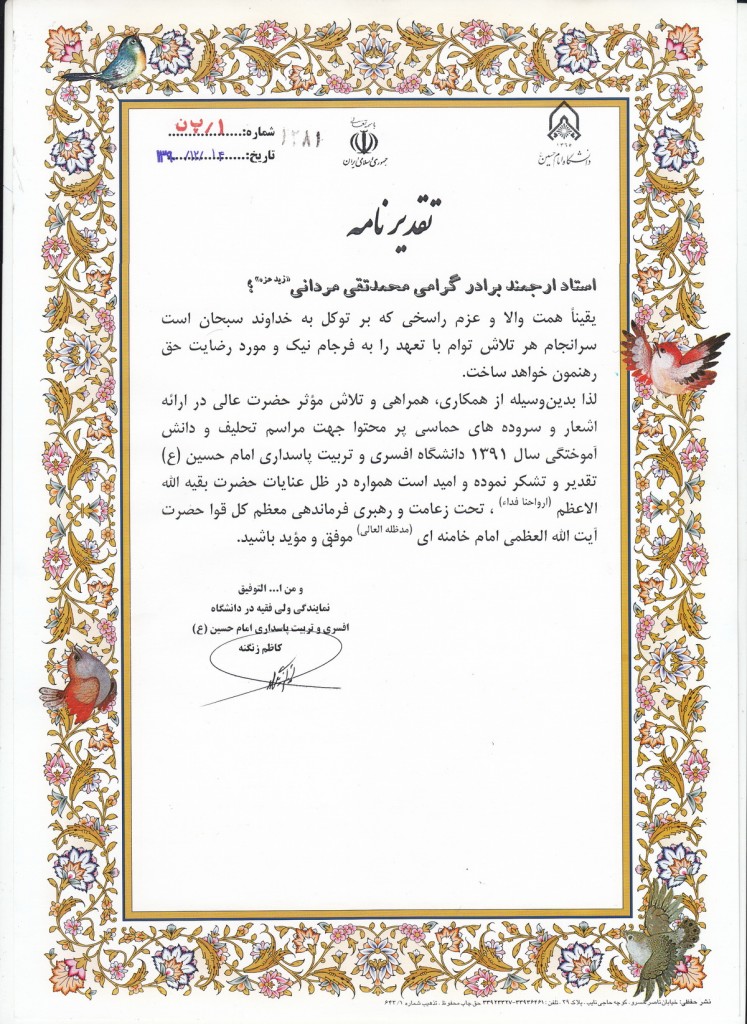 باسمه تعالی
جمهوری اسلامی ایران
۱۳۶۵
دانشگاه امام حسین
شماره: ۱/پ ن
۱۲۸۱
تاریخ: ۱۳۹۰/۱۲/۱۴
تقدیر نامه
استاد ارجمند برادر گرامی محمدتقی مردانی «زید عزه» ؟
یقیناً همت والا و عزم راسخی که بر توکل به خداوند سبحان است
سرانجام هر تلاش توام با تعهد را به فرجام نیک و مورد رضایت حق
رهنمون خواهد ساخت.
لذا بدین‌وسیله از همکاری، همراهی و تلاش مؤثر حضرت عالی در ارائه
اشعار و سروده های حماسی پر محتوا جهت مراسم تحلیف و دانش
آموختگی سال ۱۳۹۱ دانشگاه افسری و تربیت پاسداری امام حسین (ع)
تقدیر و تشکر نموده و امید است همواره در ظل عنایات حضرت بقیه الله
الاعظم (ارواحنا فداء) ، تحت زعامت و رهبری فرماندهی معظم کل قوا حضرت
آیت الله العظمی امام خامنه ای (مدظله العالی) موفق و مؤید باشید.
و من ا... التوفیق
نمایندگی ولی فقیه در دانشگاه
افسری و تربیت پاسداری امام حسین (ع)
کاظم زنگنه
نشر حفظی: خیابان ناصرخسرو، کوچه حاجی نایب، پلاک ۲۹ ـ تلفن: ۳۳۹۳۶۴۶۱-۳۳۹۲۳۳۲۷ حق چاپ محفوظ . تذهیب شماره ۶۴۳/۱